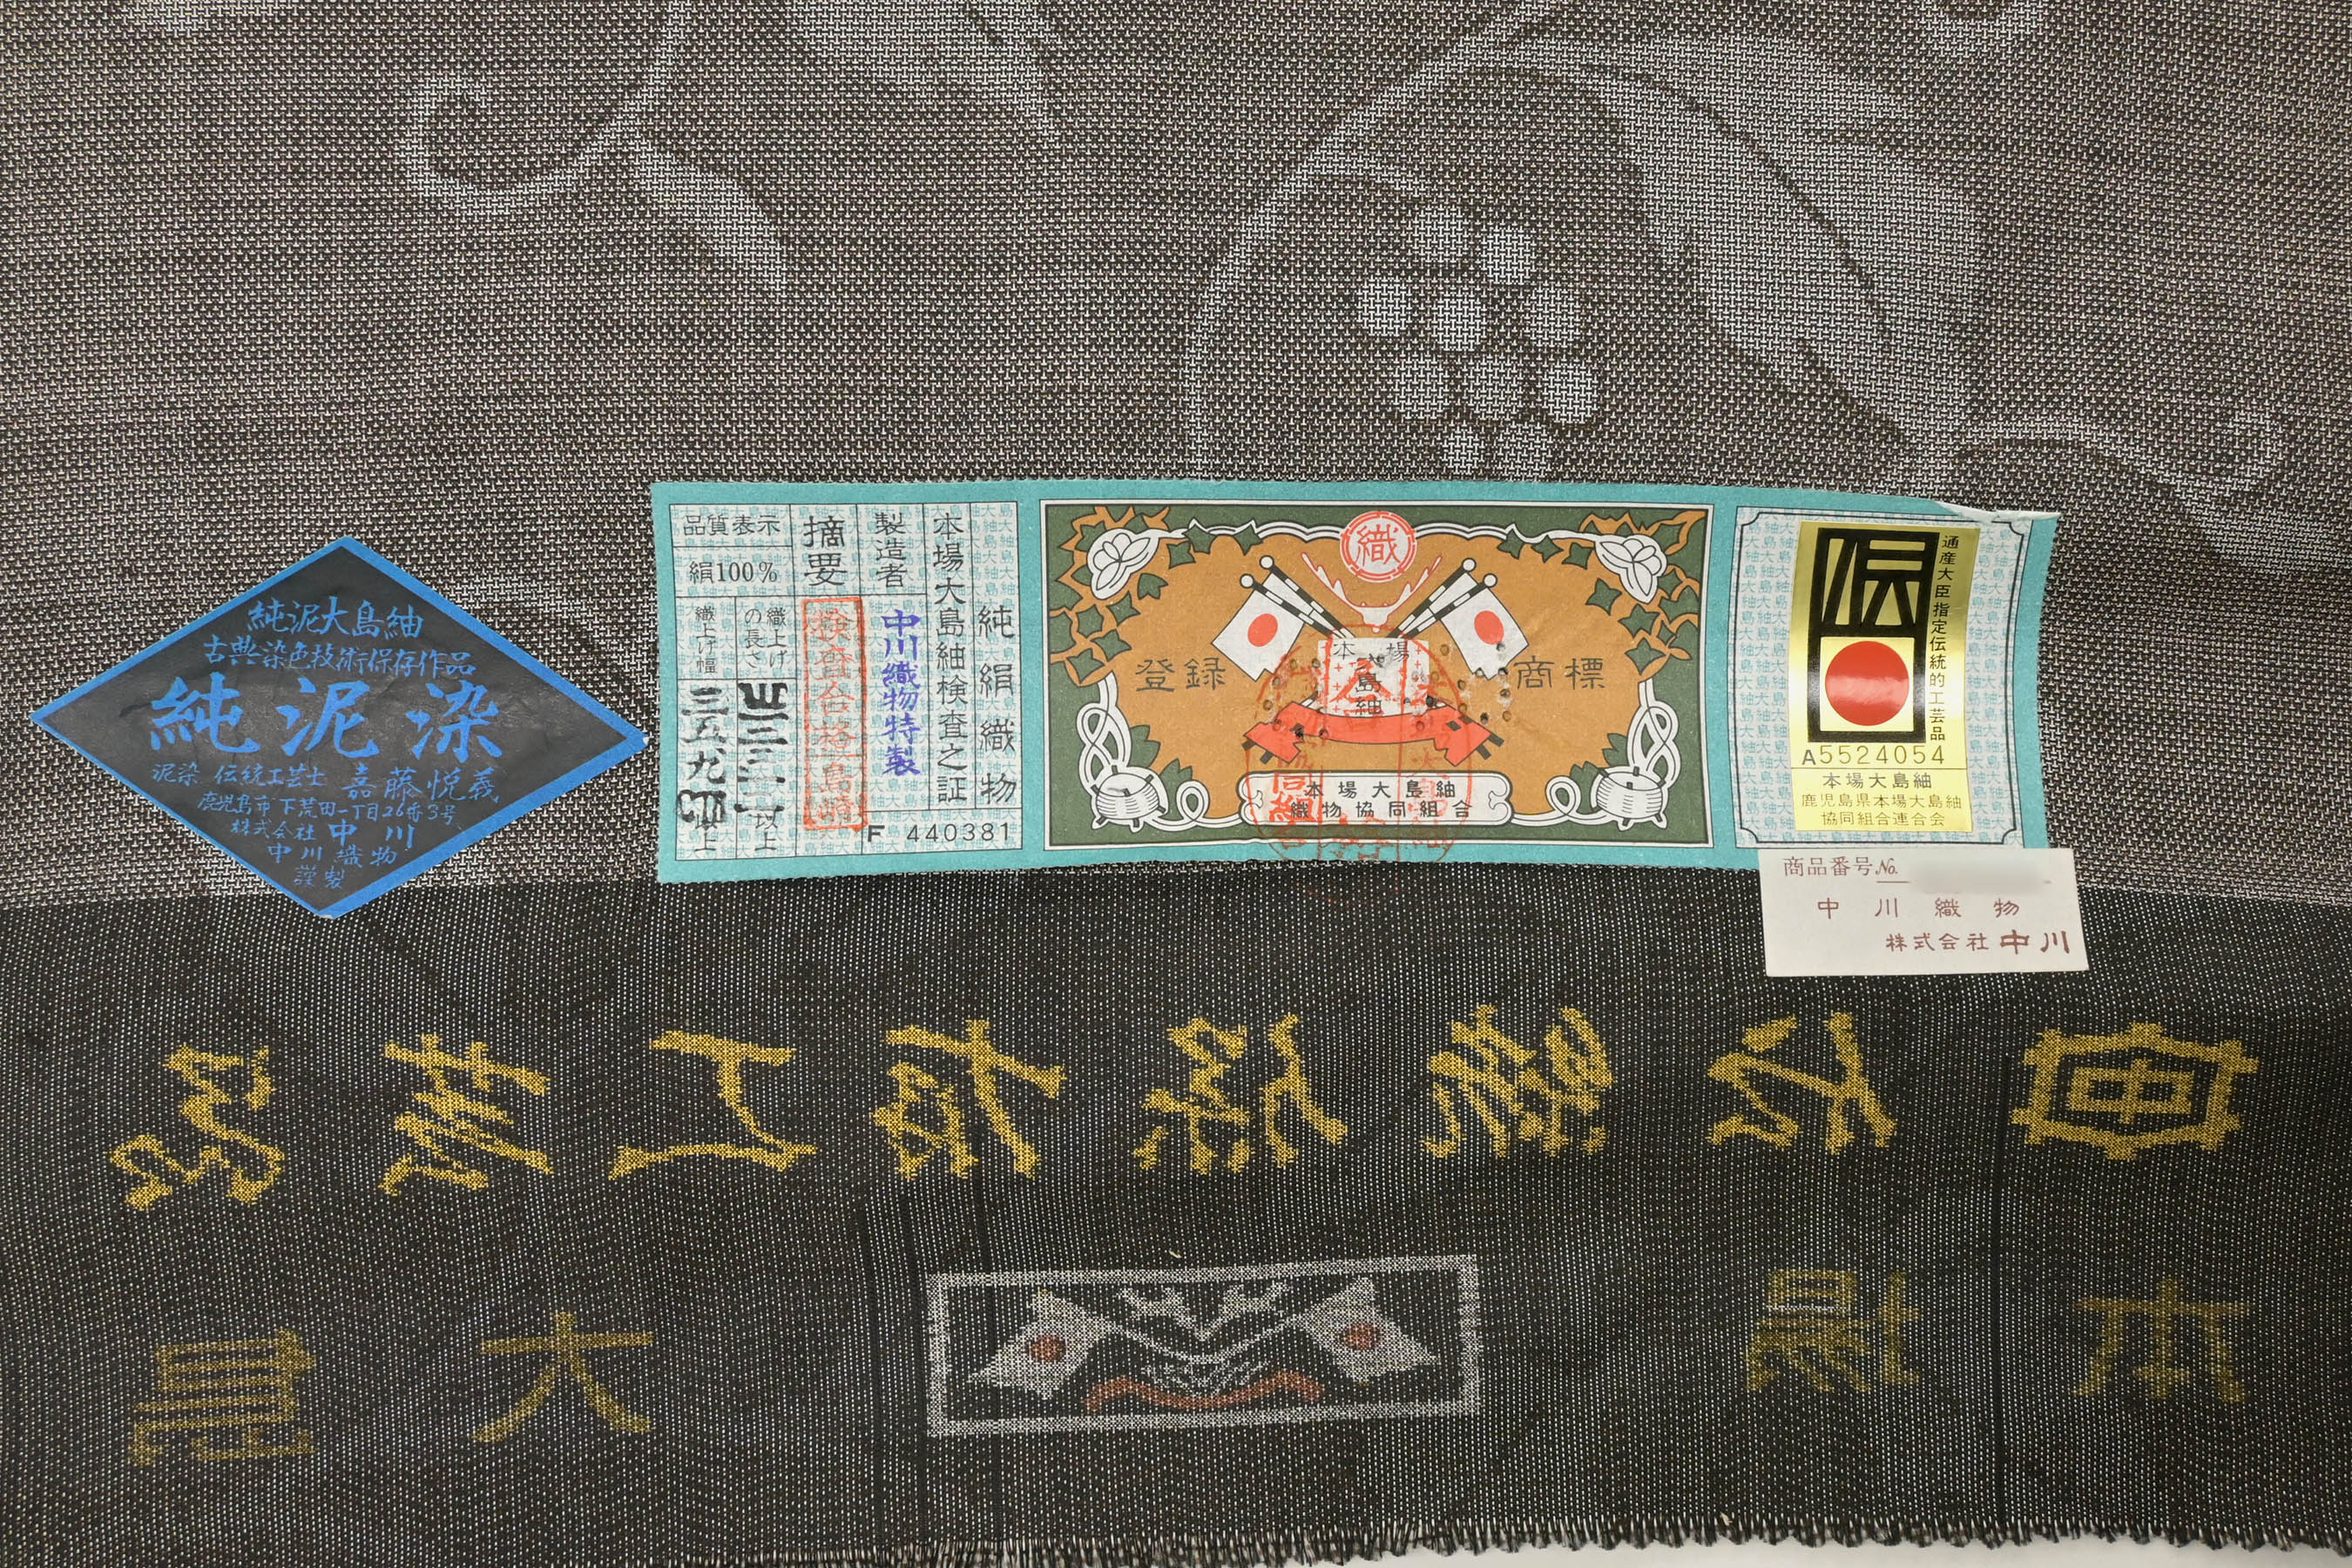 純泥大島紬
古典染色技術保存作品
純泥染
泥染 伝統工芸士 嘉藤悦義
鹿児島市下荒田一丁目26番3号
株式会社 中川
中川織物
謹製
純絹織物
本場大島紬検査之証
製造者
中川織物特製
摘要
検査合格
品質表示
絹100%
織上げの長さ
以上
織上げ幅
以上
F 440381
織
登録
商標
本場
大島紬
本場大島紬
織物協同組合
伝
通産大臣指定伝統的工芸品
A5524054
本場大島紬
鹿児島県本場大島紬
協同組合連合会
商品番号No.
中川織物
株式会社中川
中
工芸
本場
大島